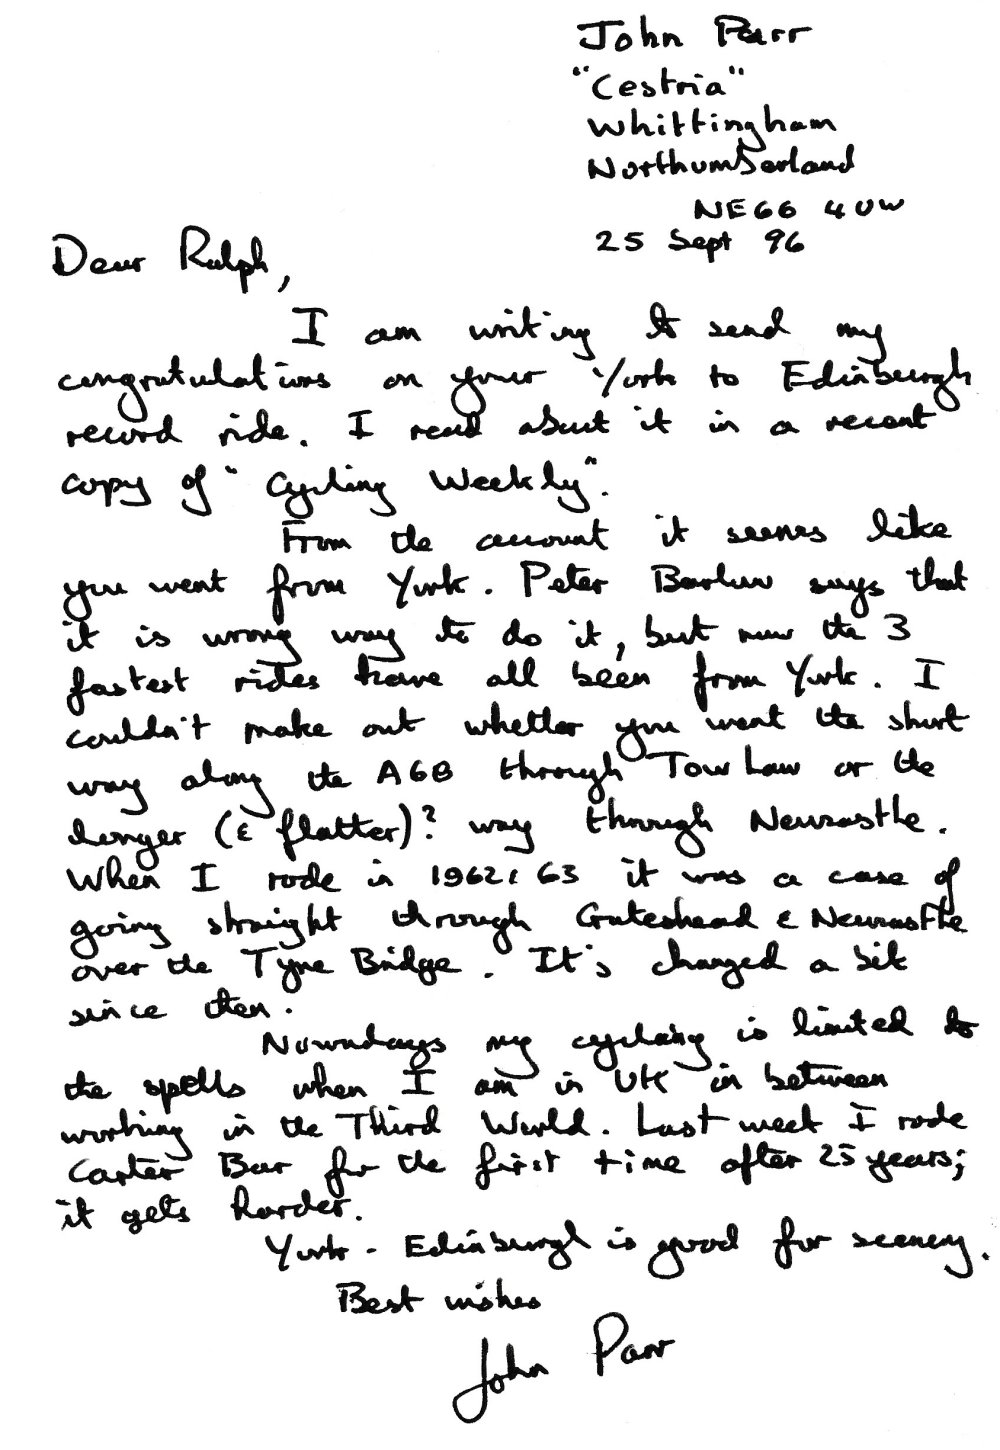 John Parr
"Cestria"
Whittingham
Northumberland
NE66 4UW
25 Sept 96
Dear Ralph,
I am writing to send my
congratulations on your York to Edinburgh
record ride. I read about it in a recent
copy of "Cycling Weekly".
From the account it seems like
you went from York. Peter Barlow says that
it is wrong way to do it, but now the 3
fastest rides have all been from York. I
couldn't make out whether you went the short
way along the A68 through Tow Law or the
longer (& flatter)? way through Newcastle.
When I rode in 1962 & 63 it was a case of
going straight through Gateshead & Newcastle
over the Tyne Bridge. It's changed a bit
since then.
Nowadays my cycling is limited to
the spells when I am in UK in between
working in the Third World. Last week I rode
Carter Bar for the first time after 25 years;
it gets harder.
York - Edinburgh is good for scenery.
Best wishes
John Parr